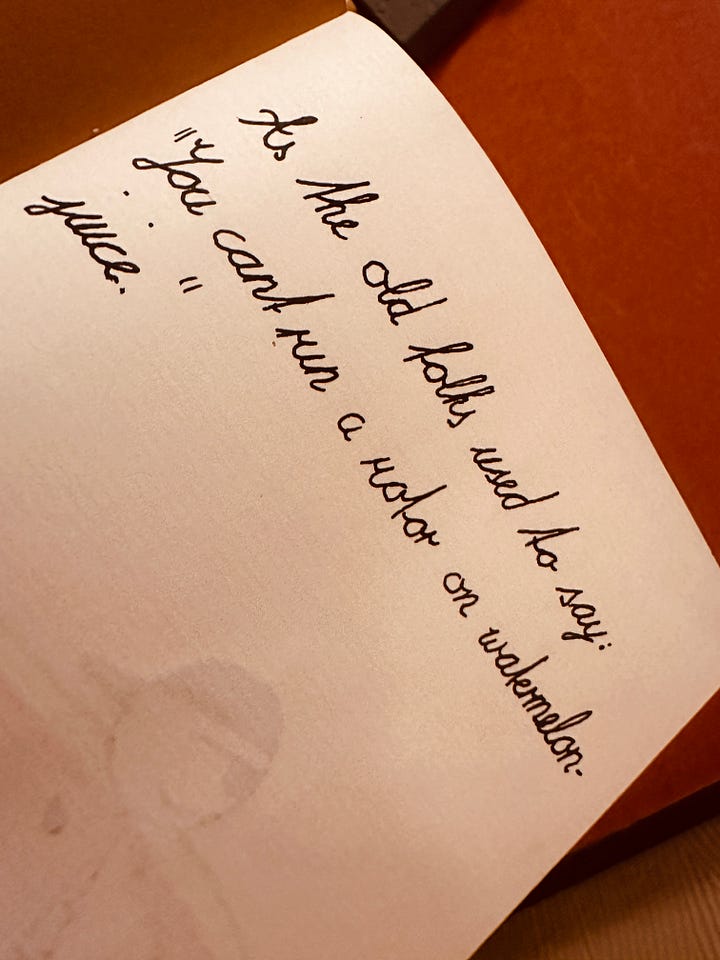 As the old folks used to say:
"You cant run a rotor on watermelon.
juice."